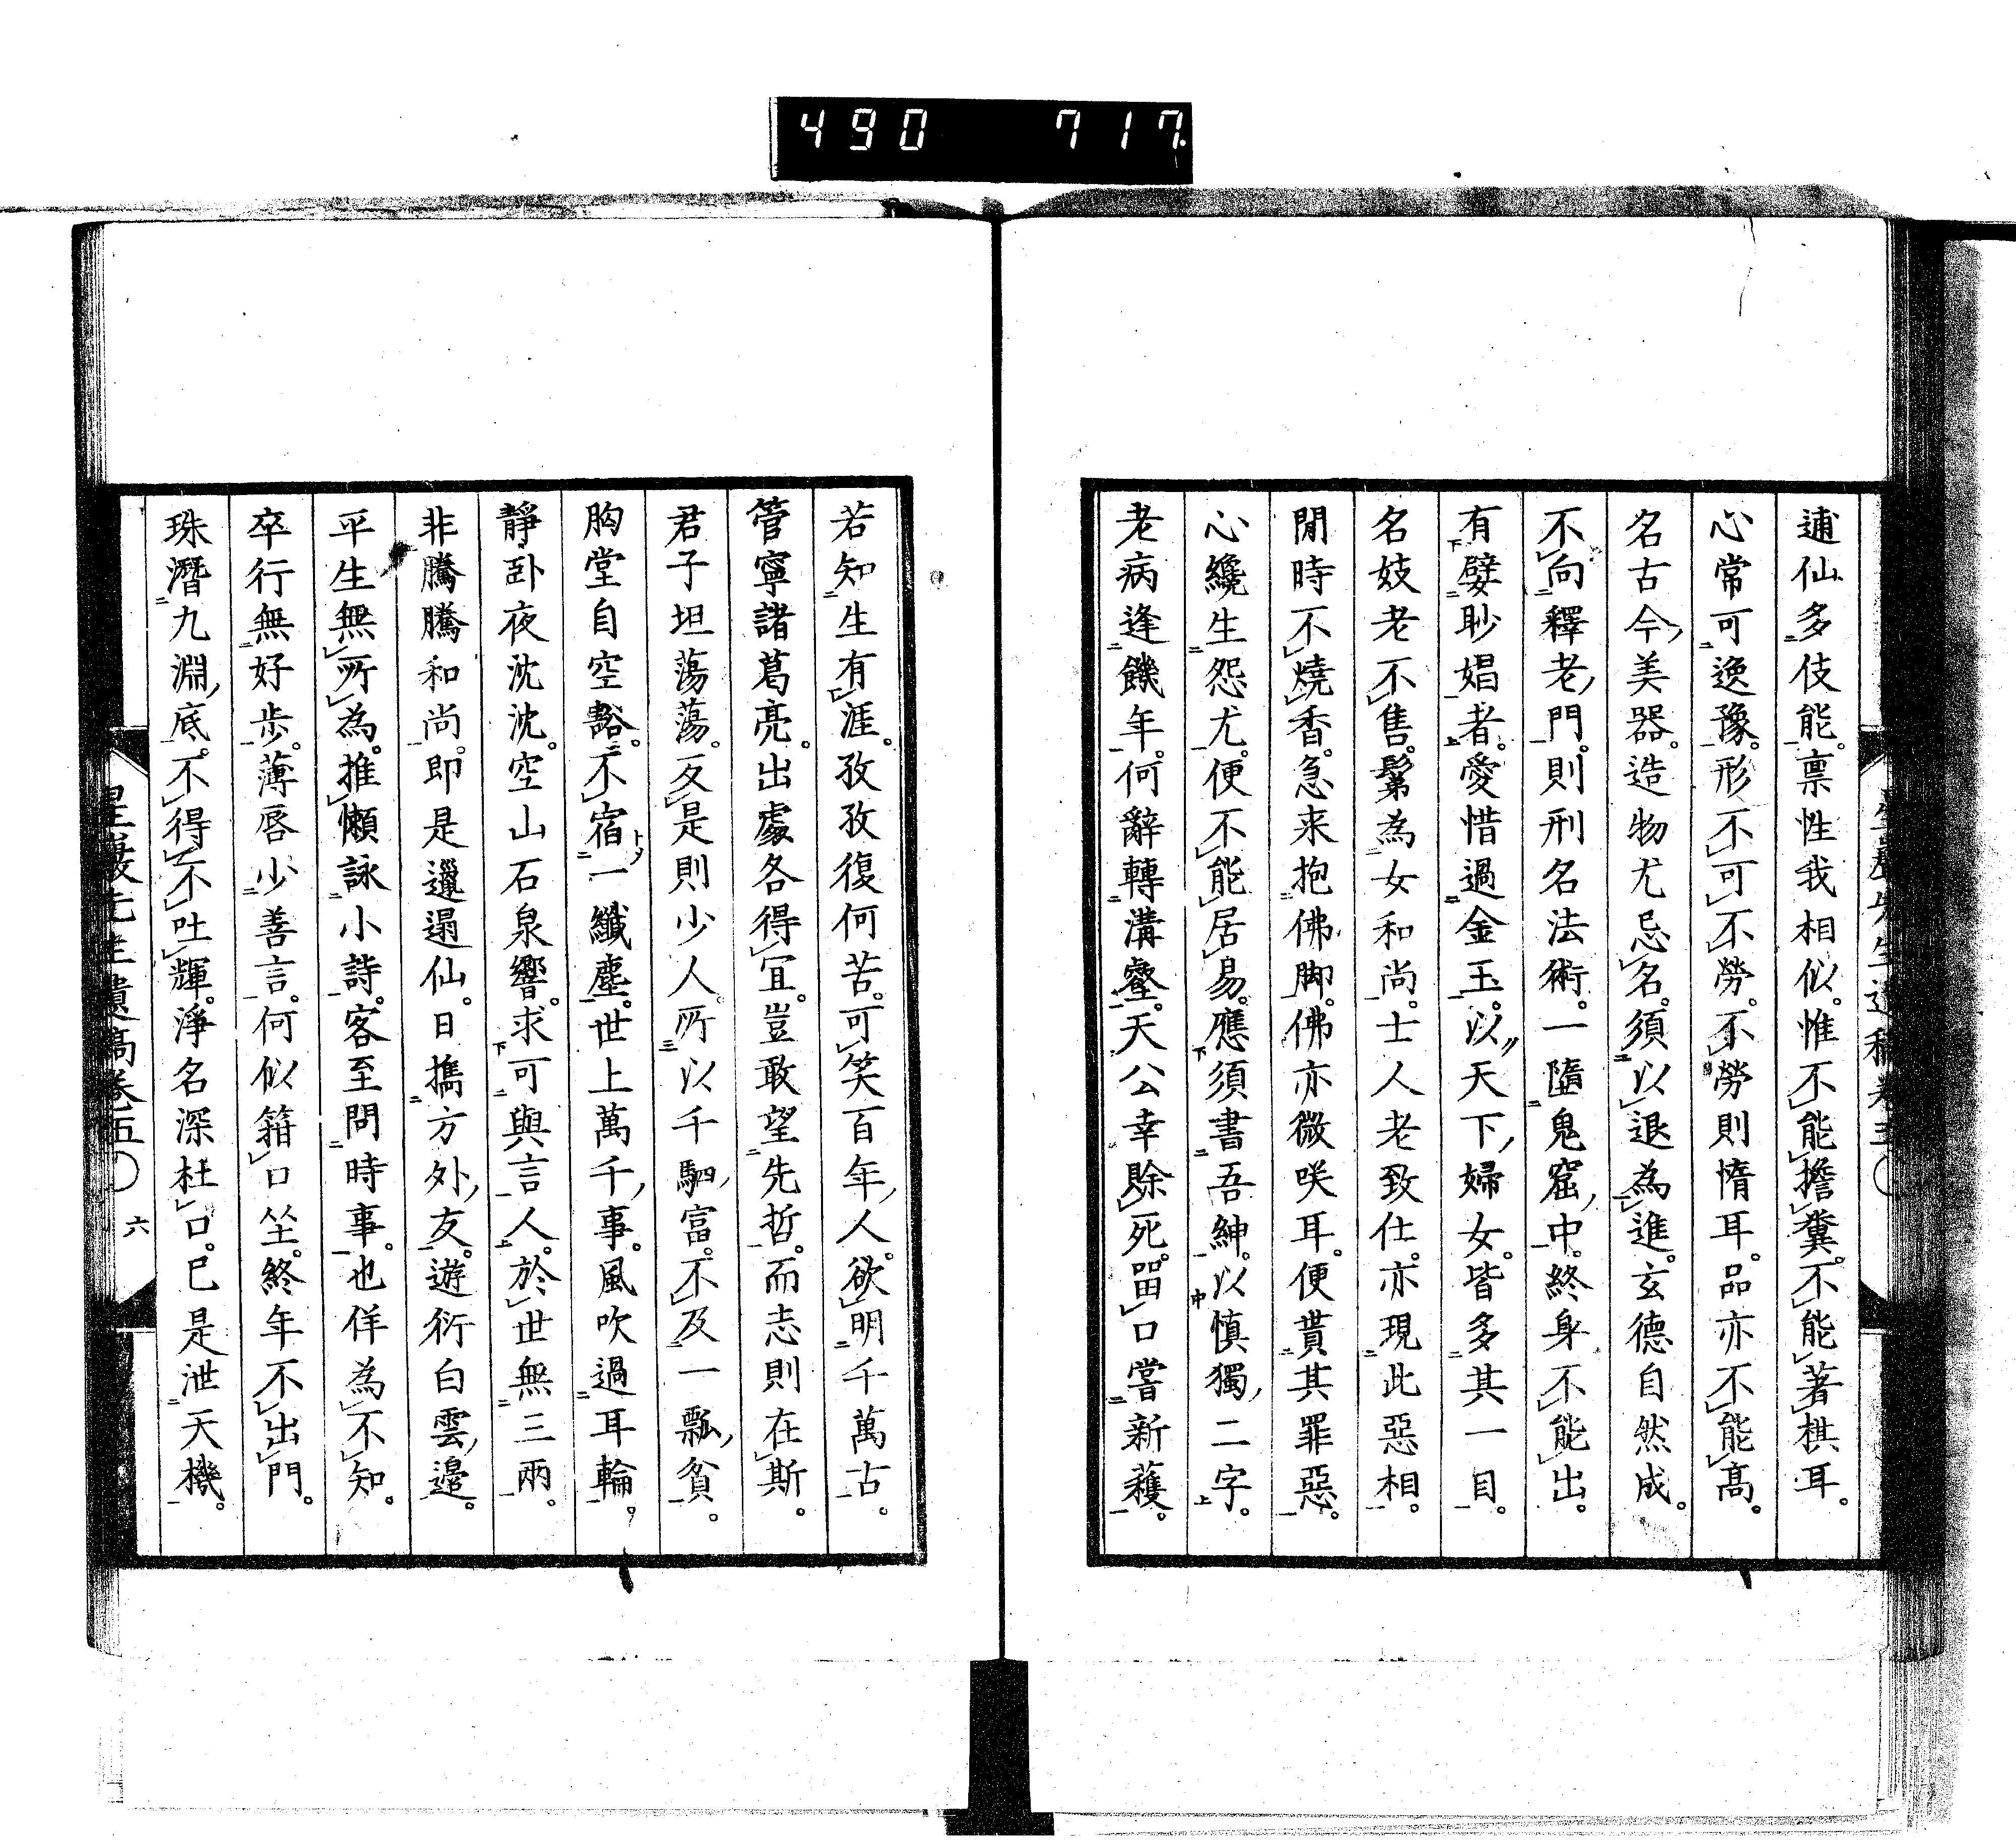 490 717
逋仙多伎能。禀性我相似。惟不能擔糞。不能著棋耳。
心常可逸豫。形不可不勞。不勞則惰耳。品亦不能高。
名古今美器。造物尤忌名。須以退為進。玄德自然成。
不向釋老門。則刑名法術。一墮鬼窟中。終身不能出。
有嬖眇娼者。愛惜過金玉。以天下婦女。皆多其一目。
名妓老不售。鬀為女和尚。士人老致仕。亦現此惡相。
閒時不燒香。急来抱佛脚。佛亦微咲耳。便貰其罪惡。
心纔生怨尤。便不能居易。應須書吾紳。以慎獨二字。
老病逢饑年。何辭轉溝壑。天公幸賒死。畱口嘗新穫。
若知生有涯。孜孜復何苦。可笑百年人。欲明千萬古。
管寧諸葛亮。出處各得宜。豈敢望先哲。而志則在斯。
君子坦蕩蕩。反是則少人。所以千駟富。不及一瓢貧。
胸堂自空豁。不宿一纖塵。世上萬千事。風吹過耳輪。
靜臥夜沈沈。空山石泉響。求可與言人。於世無三兩。
非騰騰和尚。即是邋遢仙。日擕方外友。遊衍白雲邊。
平生無所為。推懶詠小詩。客至問時事。也佯為不知。
卒行無好歩。薄唇少善言。何似箝口坐。終年不出門。
珠潛九淵底。不得不吐輝。淨名深杜口。已是泄天機。
星巖先生遺稿卷五〇 六